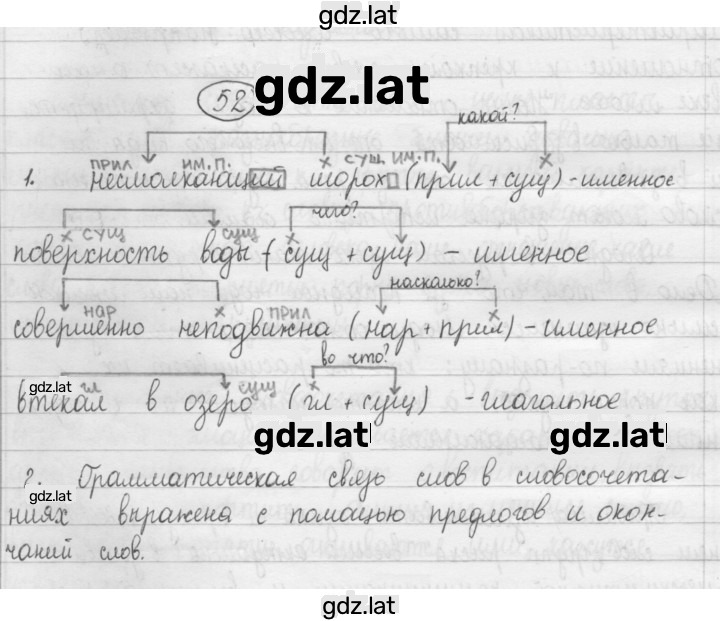 gdz.lat
52 gdz.lat
какой?
прил им. п. сущ. им. п.
1. несмолкающий шорох (прил + сущ) - именное
чего?
сущ сущ
поверхность воды (сущ + сущ) - именное
насколько?
нар прил
совершенно неподвижна (нар + прил) - именное
во что?
gdz.lat гл сущ
втекал в озеро (гл + сущ) - глагольное
gdz.lat gdz.lat
2. Грамматическая связь слов в словосочета-
gdz.lat
ниях выражена с помощью предлогов и окон-
чаний слов.
gdz.lat